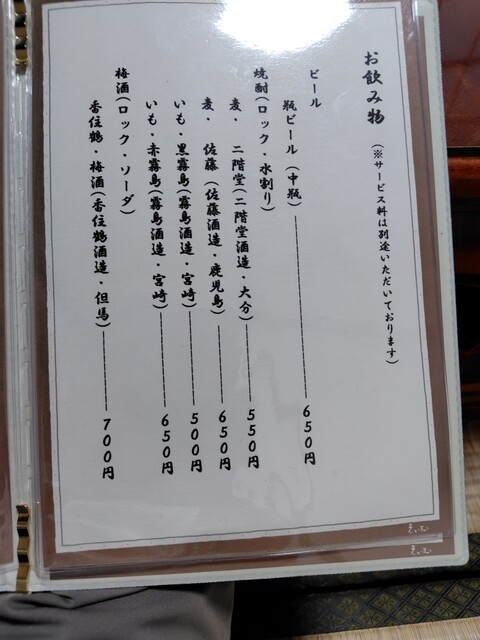 お飲み物 (※サービス料は別途いただいております)
ビール
瓶ビール (中瓶) 650円
焼酎(ロック・水割り)
麦・ 二階堂(二階堂酒造・大分) 550円
麦・ 佐藤 (佐藤酒造・鹿児島) 650円
いも・黒霧島(霧島酒造・宮崎) 500円
いも・赤霧島(霧島酒造・宮崎) 650円
梅酒(ロック・ソーダ)
香住鶴・梅酒(香住鶴酒造・但馬) 700円